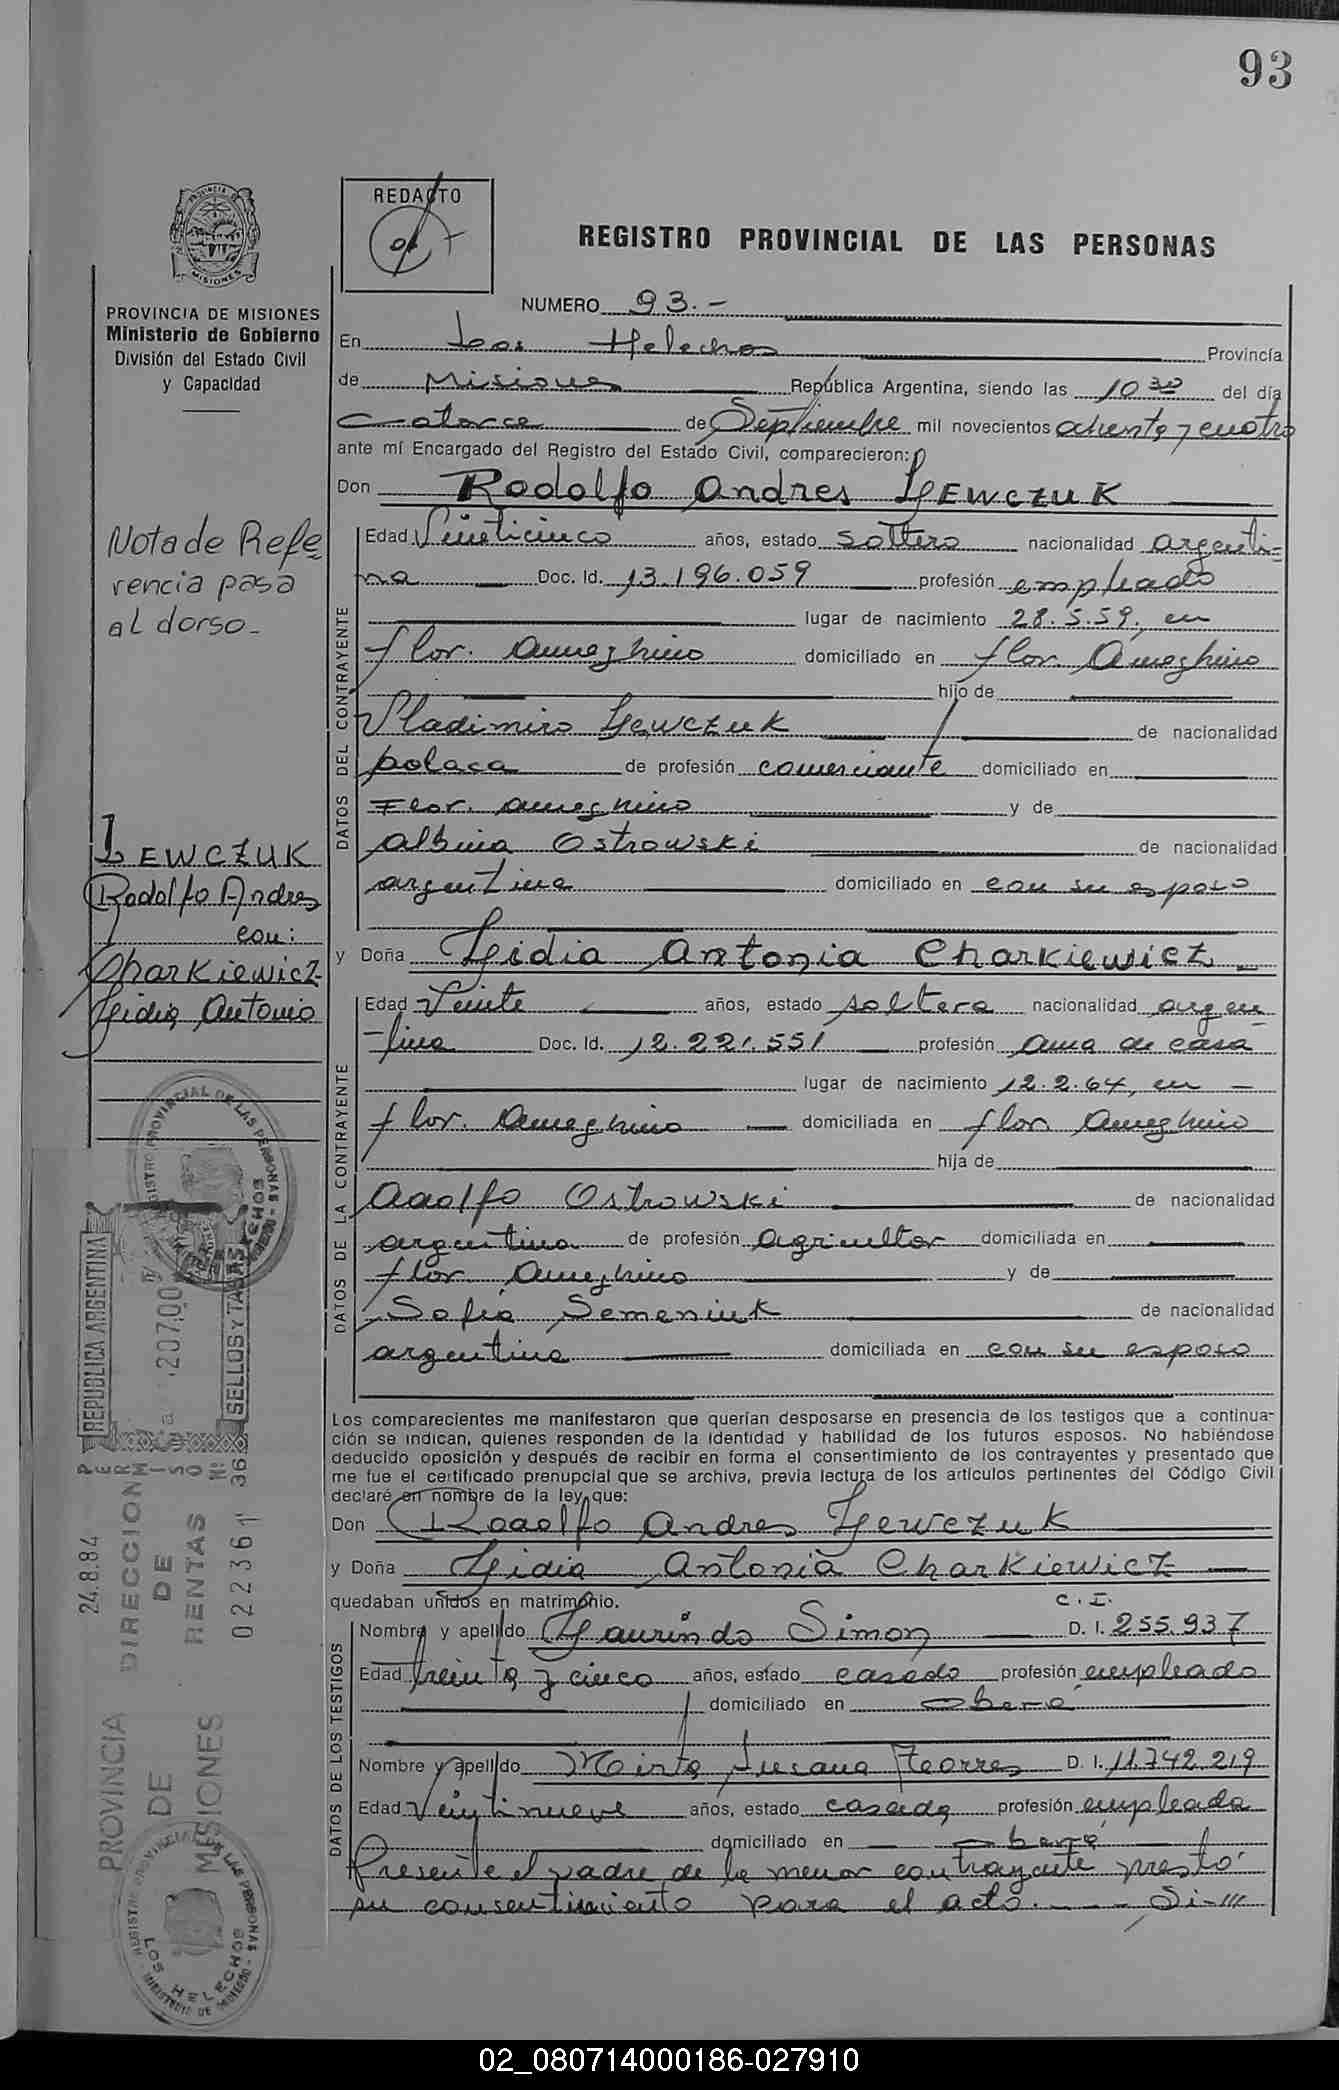 93
REDACTO
REGISTRO PROVINCIAL DE LAS PERSONAS
MISIONES
PROVINCIA DE MISIONES
Ministerio de Gobierno
División del Estado Civil
y Capacidad
Nota de Refe
rencia pasa
al dorso_
LEWCZUK
Rodolfo Andres
con:
Charkiewicz
Lidia Antonia
NUMERO 93.-
En Los Helechos Provincia
de Misiones República Argentina, siendo las 10 30 del día
Catorce de Septiembre mil novecientos ochenta y cuatro
ante mí Encargado del Registro del Estado Civil, comparecieron:
Don Rodolfo Andres LEWCZUK
DATOS DEL CONTRAYENTE
Edad Veinticinco años, estado soltero nacionalidad argenti=
na Doc. Id. 13.196.059 profesión empleado
lugar de nacimiento 28.5.59, en
flor. Ameghino domiciliado en flor. Ameghino
hijo de
Vladimiro Lewczuk de nacionalidad
polaca de profesión comerciante domiciliado en
Flor. Ameghino y de
Albina Ostrowski de nacionalidad
argentina domiciliado en con su esposo
y Doña Lidia Antonia Charkiewicz
DATOS DE LA CONTRAYENTE
Edad Veinte años, estado soltera nacionalidad argen
tina Doc. Id. 12.221.551 profesión ama de casa
lugar de nacimiento 12.2.64, en -
flor. Ameghino domiciliada en flor Ameghino
hija de
Adolfo Ostrowski de nacionalidad
argentina de profesión agricultor domiciliada en
flor Ameghino y de
Sofia Semeniuk de nacionalidad
argentina domiciliada en con su esposo
Los comparecientes me manifestaron que querían desposarse en presencia de los testigos que a continua-
ción se indican, quienes responden de la identidad y habilidad de los futuros esposos. No habiéndose
deducido oposición y después de recibir en forma el consentimiento de los contrayentes y presentado que
me fue el certificado prenupcial que se archiva, previa lectura de los artículos pertinentes del Código Civil
declaré en nombre de la ley que:
Don Rodolfo Andres Lewczuk
y Doña Lidia Antonia Charkiewicz
quedaban unidos en matrimonio.
C.I.
DATOS DE LOS TESTIGOS
Nombre y apellido Laurindo Simon D. I. 255.937
Edad treinta y cinco años, estado casado profesión empleado
domiciliado en Oberá
Nombre y apellido Mirta Susana Torres D. I. 11.742.219
Edad Veintinueve años, estado casada profesión empleada
domiciliado en Oberá
Presente el padre de la menor contrayente prestó
su consentimiento para el acto. Si-///
REPUBLICA ARGENTINA
SELLOS Y TASAS
PERMISO Nº 36
24.8.84
DIRECCION
DE
RENTAS
022361
PROVINCIA
DE
MISIONES
REGISTRO PROVINCIAL DE LAS PERSONAS
MINISTERIO DE GOBIERNO
LOS HELECHOS
02_080714000186-027910